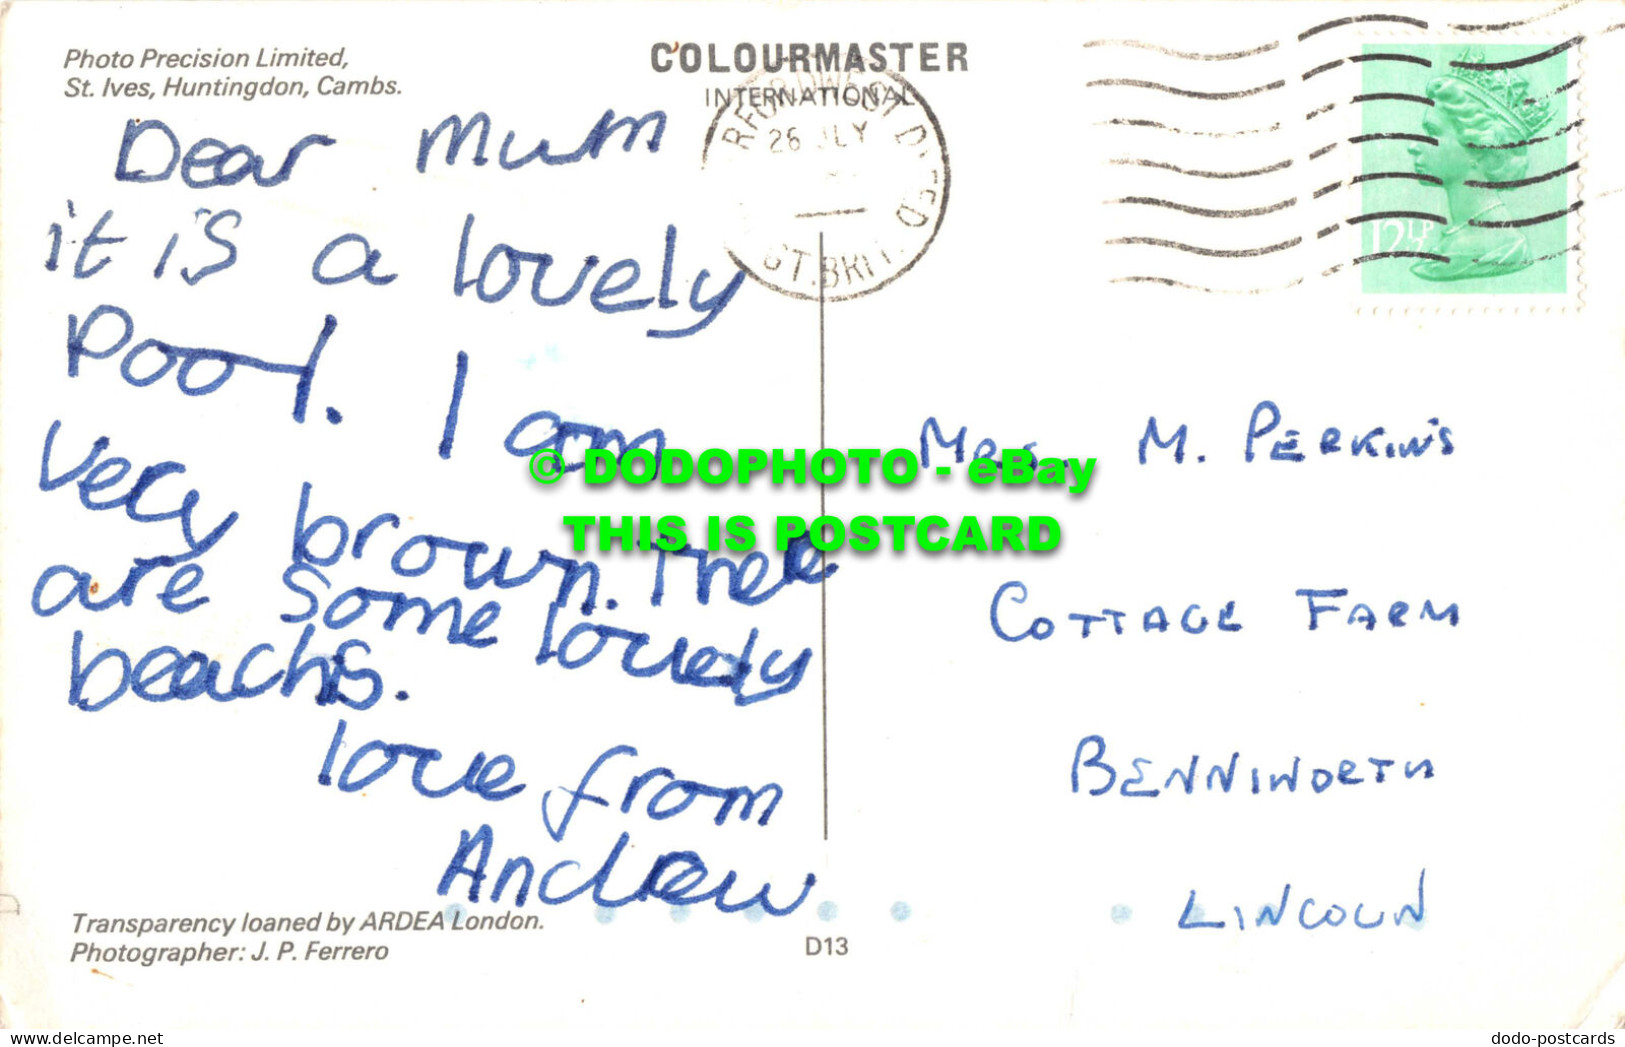 Photo Precision Limited,
St. Ives, Huntingdon, Cambs.
COLOURMASTER
INTERNATIONAL
26 JLY
GT. BRIT.
12½P
Dear Mum
it is a lovely
Pool. I am
very brown. Thee
are some lovely
beachs.
love from
Andrew
Mrs. M. PERKINS
COTTAGE FARM
BENNIWORTH
LINCOLN
© DODOPHOTO - eBay
THIS IS POSTCARD
Transparency loaned by ARDEA London.
Photographer: J. P. Ferrero
D13
delcampe.net
dodo-postcards